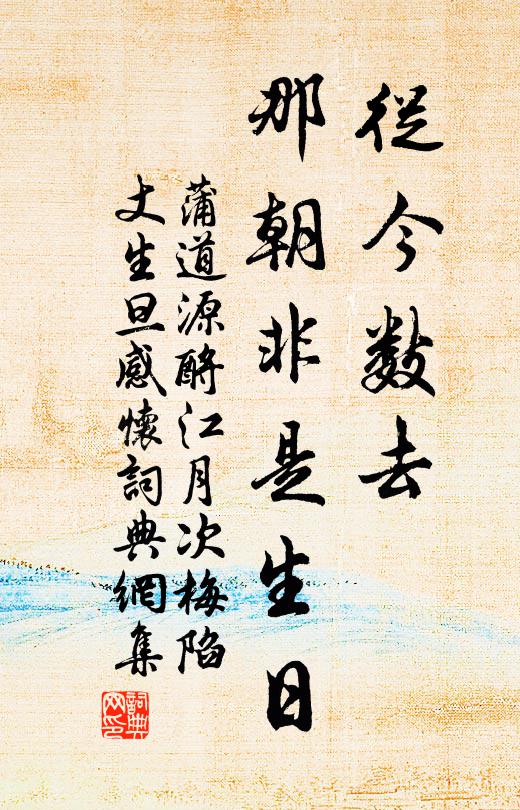 從今數去
那朝非是生日
蒲道源酹江月次梅陷
丈生旦感懷詞典網集
詞典網印